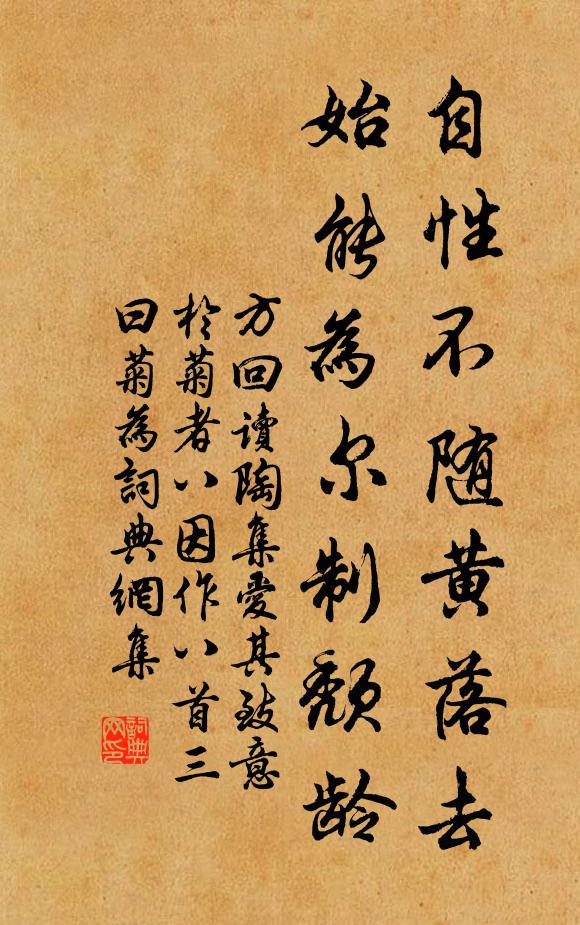 自性不随黄落去
始能為尔制颓龄
方回读陶集愛其致意
於菊者八因作八首三
曰菊為詞典網集
詞典网印